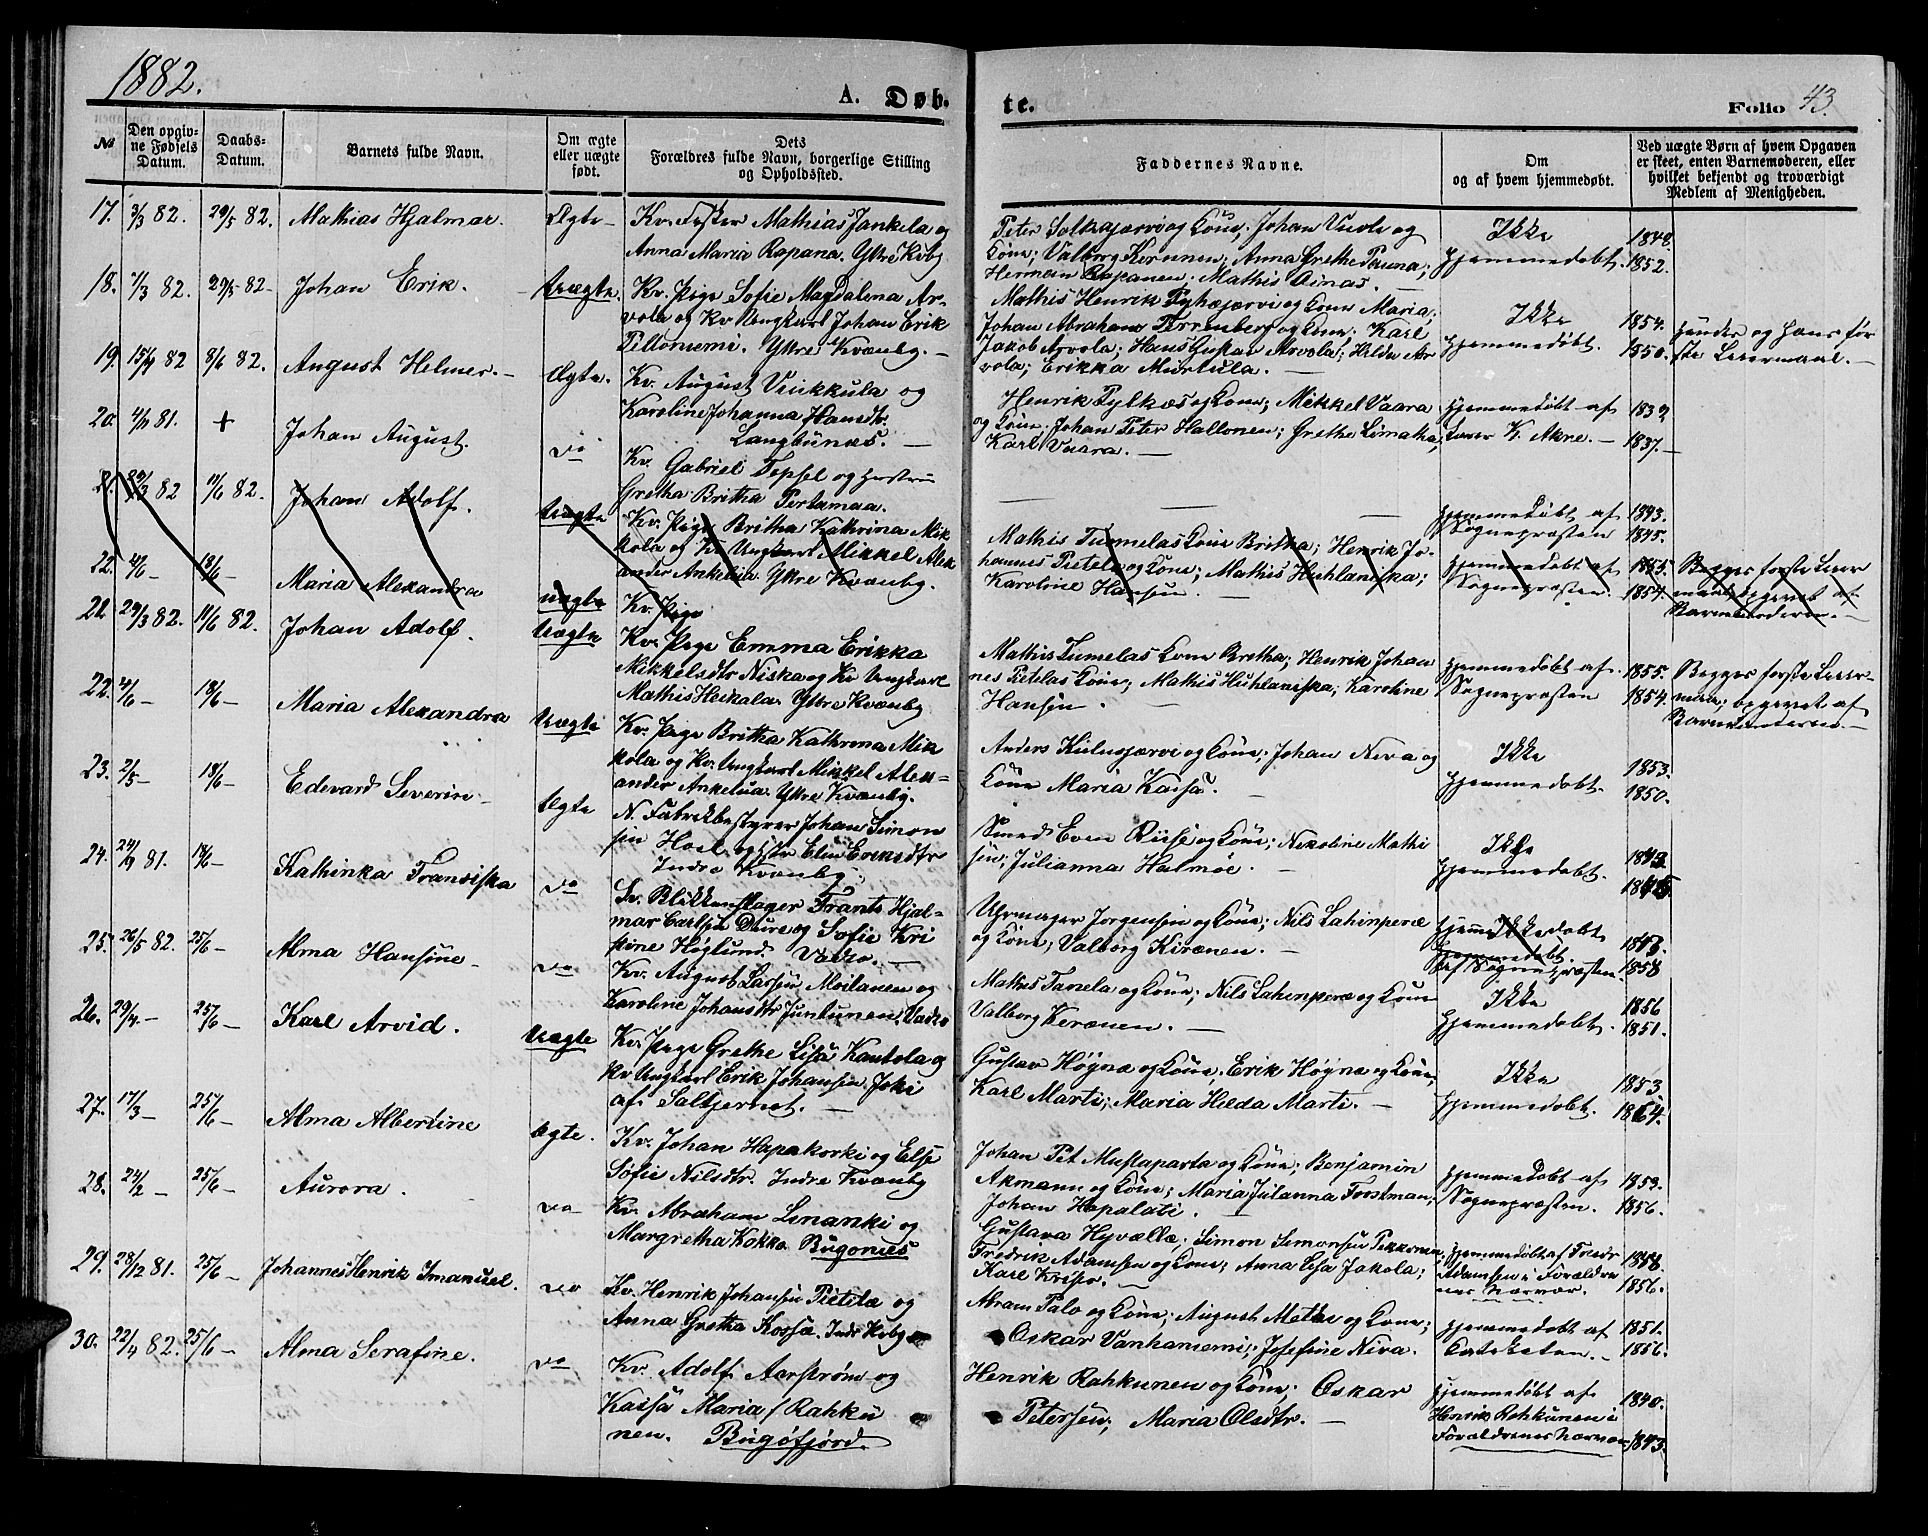 1882.
A. Døb.
te.
Folio 43.
№
Den opgiv-
ne Fødsels
Datum.
Daabs-
Datum.
Barnets fulde Navn.
Om ægte
eller uægte
født.
Dets
Forældres fulde Navn, borgerlige Stilling
og Opholdssted.
Faddernes Navne.
Om
og af hvem hjemmedøbt.
Ved uægte Børn af hvem Opgaven
er skeet, enten Barnemoderen, eller
hvilket bekjendt og troværdigt
Medlem af Menigheden.
17. 3/3 82. 29/5 82. Mathias Hjalmar. Ægte
Kv. Fisker Mathias Jankela og
Anna Maria Rapana. Ytre Kvbg
Peter Solkajærvi og Kone; Johan Vuolo og
Kone; Valborg Kerunen; Anna Grethe Pauna;
Herman Rapanen; Mathis Ainas.
Ikke
hjemmedøbt.
1848.
1852.
18. 7/3 82. 29/5 82 Johan Erik. Uægte.
Kv. Pige Sofie Magdalena Ar-
vola og Kv Ungkarl Johan Erik
Peltoniemi. Ytre Kvænbg.
Mathis Henrik Pyhæjærvi og Kone Maria;
Johan Abraham Perrenberg og Kone; Karl
Jakob Arvola; Hans Gustav Arvola; Hilda Ar
vola; Erikka Murtula.
Ikke
hjemmedøbt.
1854.
1850.
hendes og hans før
ste Leiermaal.
19. 15/4 82 8/6 82. August Helmer. Ægte.
Kv. August Vinikkula og
Karoline Johanna Hansdtr.
Langbunæs.
Henrik Pylkæs og Kone; Mikkel Vaara
og Kone; Johan Peter Hallonen; Grethe Limatka;
Karl Vaara.
hjemmedøbt af
Lærer K. Akre.
1832
1837.
20. 4/11 81. + Johan August. do
Kv. Gabriel Tepsel og Hustru
Gretha Britha Pertamaa.
hjemmedøbt af
Sognepræsten
1843.
1845.
21. 29/3 82 11/6 82. Johan Adolf. Uægte
Kv. Pige Britha Kathrina Mik
kola og Kv Ungkarl Mikkel Alex
ander Ankelia. Ytre Kvænbg.
Mathis Tumelas Kone Britha; Henrik Jo-
hannes Pietela og Kone; Mathis Huhlaniska;
Karoline Hansen.
hjemmedøbt af
Sognepræsten.
1855.
1854.
Begges første Leier
maal, opgivet af
Barnemoderen.
22. 4/6 – 18/6 – Maria Alexandra uægte
Kv. Pige
21 29/3 82. 11/6 82. Johan Adolf. Uægte
Kv. Pige Emma Erikka
Mikkelsdtr Niska og Kv Ungkarl
Mathis Heikala. Ytre Kvænbg
Mathis Tumelas Kone Britha; Henrik Johan
nes Pietelas Kone; Mathis Huhlaniska; Karoline
Hansen.
hjemmedøbt af
Sognepræsten
1855.
1854.
Begges første Leier-
maal; opgivet af
Barnemoderen.
22. 4/6 – 18/6 – Maria Alexandra Uægte
Kv. Pige Britha Kathrina Mik
kola og Kv. Ungkarl Mikkel Alex-
ander Ankelia. Ytre Kvænbg.
Anders Kiilusjærvi og Kone; Johan Neva og
Kone Maria Kaisa.
Ikke
hjemmedøbt.
1853.
1850.
23. 2/5 – 18/6 – Edevard Severin Ægte
N. Fabrikbestyrer Johan Simon
sen Hoel og Elen Eriksdtr
Indre Kvænbg.
Smed Even Riise og Kone; Nikoline Mathi
sen; Julianna Halmøe.
Ikke
hjemmedøbt.
24. 24/9 81. 18/6 – Kathinka Fransiska do
Sv. Blikkenslager Frants Hjal-
mar Carlsen Dure og Sofie Kri
stine Høglund. Vadsø.
Uhrmager Jørgensen og Kone; Nils Lahinperæ
og Kone; Valborg Kirænen.
hjemmedøbt
Ikke
hjemmedøbt.
af Sognepræsten
1858
25. 26/5 82. 25/6 – Alma Hansine do
Kv. August Larsen Moilanen og
Karoline Johansdtr Juntunen. Vadsø
Mathis Tanela og Kone; Nils Lahinperæ og Kone
Valborg Keranen.
Ikke
hjemmedøbt.
1856
1851.
26. 29/4 – 25/6 – Karl Arvid. Uægte
Kv. Pige Grethe Lisa Kantola og
Kv Ungkarl Erik Johansen Joki
af Saltjernet.
Gustav Høgnæ og Kone; Erik Høgnæ og Kone;
Karl Marti; Maria Hilda Marti.
Ikke
hjemmedøbt.
1853.
1864.
27. 17/3 – 25/6 – Alma Albertine Ægte.
Kv. Johan Hapakorki og Else
Sofie Nilsdtr. Indre Kvænbg
Johan Pet Mustaparta og Kone; Benjamin
Akmann og Kone; Maria Julanna Forstman;
Johan Hapalati.
hjemmedøbt af
Sognepræsten.
1859.
1856.
28. 24/2 – 25/6 – Aurora. do
Kv. Abraham Linanki og
Margretha Kokko. Bugønæs
Gustava Hyvælle; Simon Simonsen Pekkonen;
Fredrik Adamsen og Kone; Anna Lisa Jakola;
Karl Krispo.
hjemmedøbt af Fredr
Adamsen i Forældre
nes Nærvær.
1858.
1856.
29. 28/12 81. 25/6 – Johannes Henrik Imanuel. do
Kv. Henrik Johansen Pietila og
Anna Gretha Korsa. Indr Kvbg
Abram Palo og Kone; August Metso og Kone;
Oskar Vanhaniemi; Josefine Niva.
hjemmedøbt af
Kateketen.
1851.
1856.
30. 22/4 82. 25/6 – Alma Serafine. do
Kv. Adolf Aarstrøm og
Kaisa Maria Rahku
nen. Bugøfjord.
Henrik Rahkunen og Kone; Oskar
Petersen; Maria Olsdtr.
hjemmedøbt af
Henrik Rahkunen i
Forældrenes Nærvær
1840.
1843.